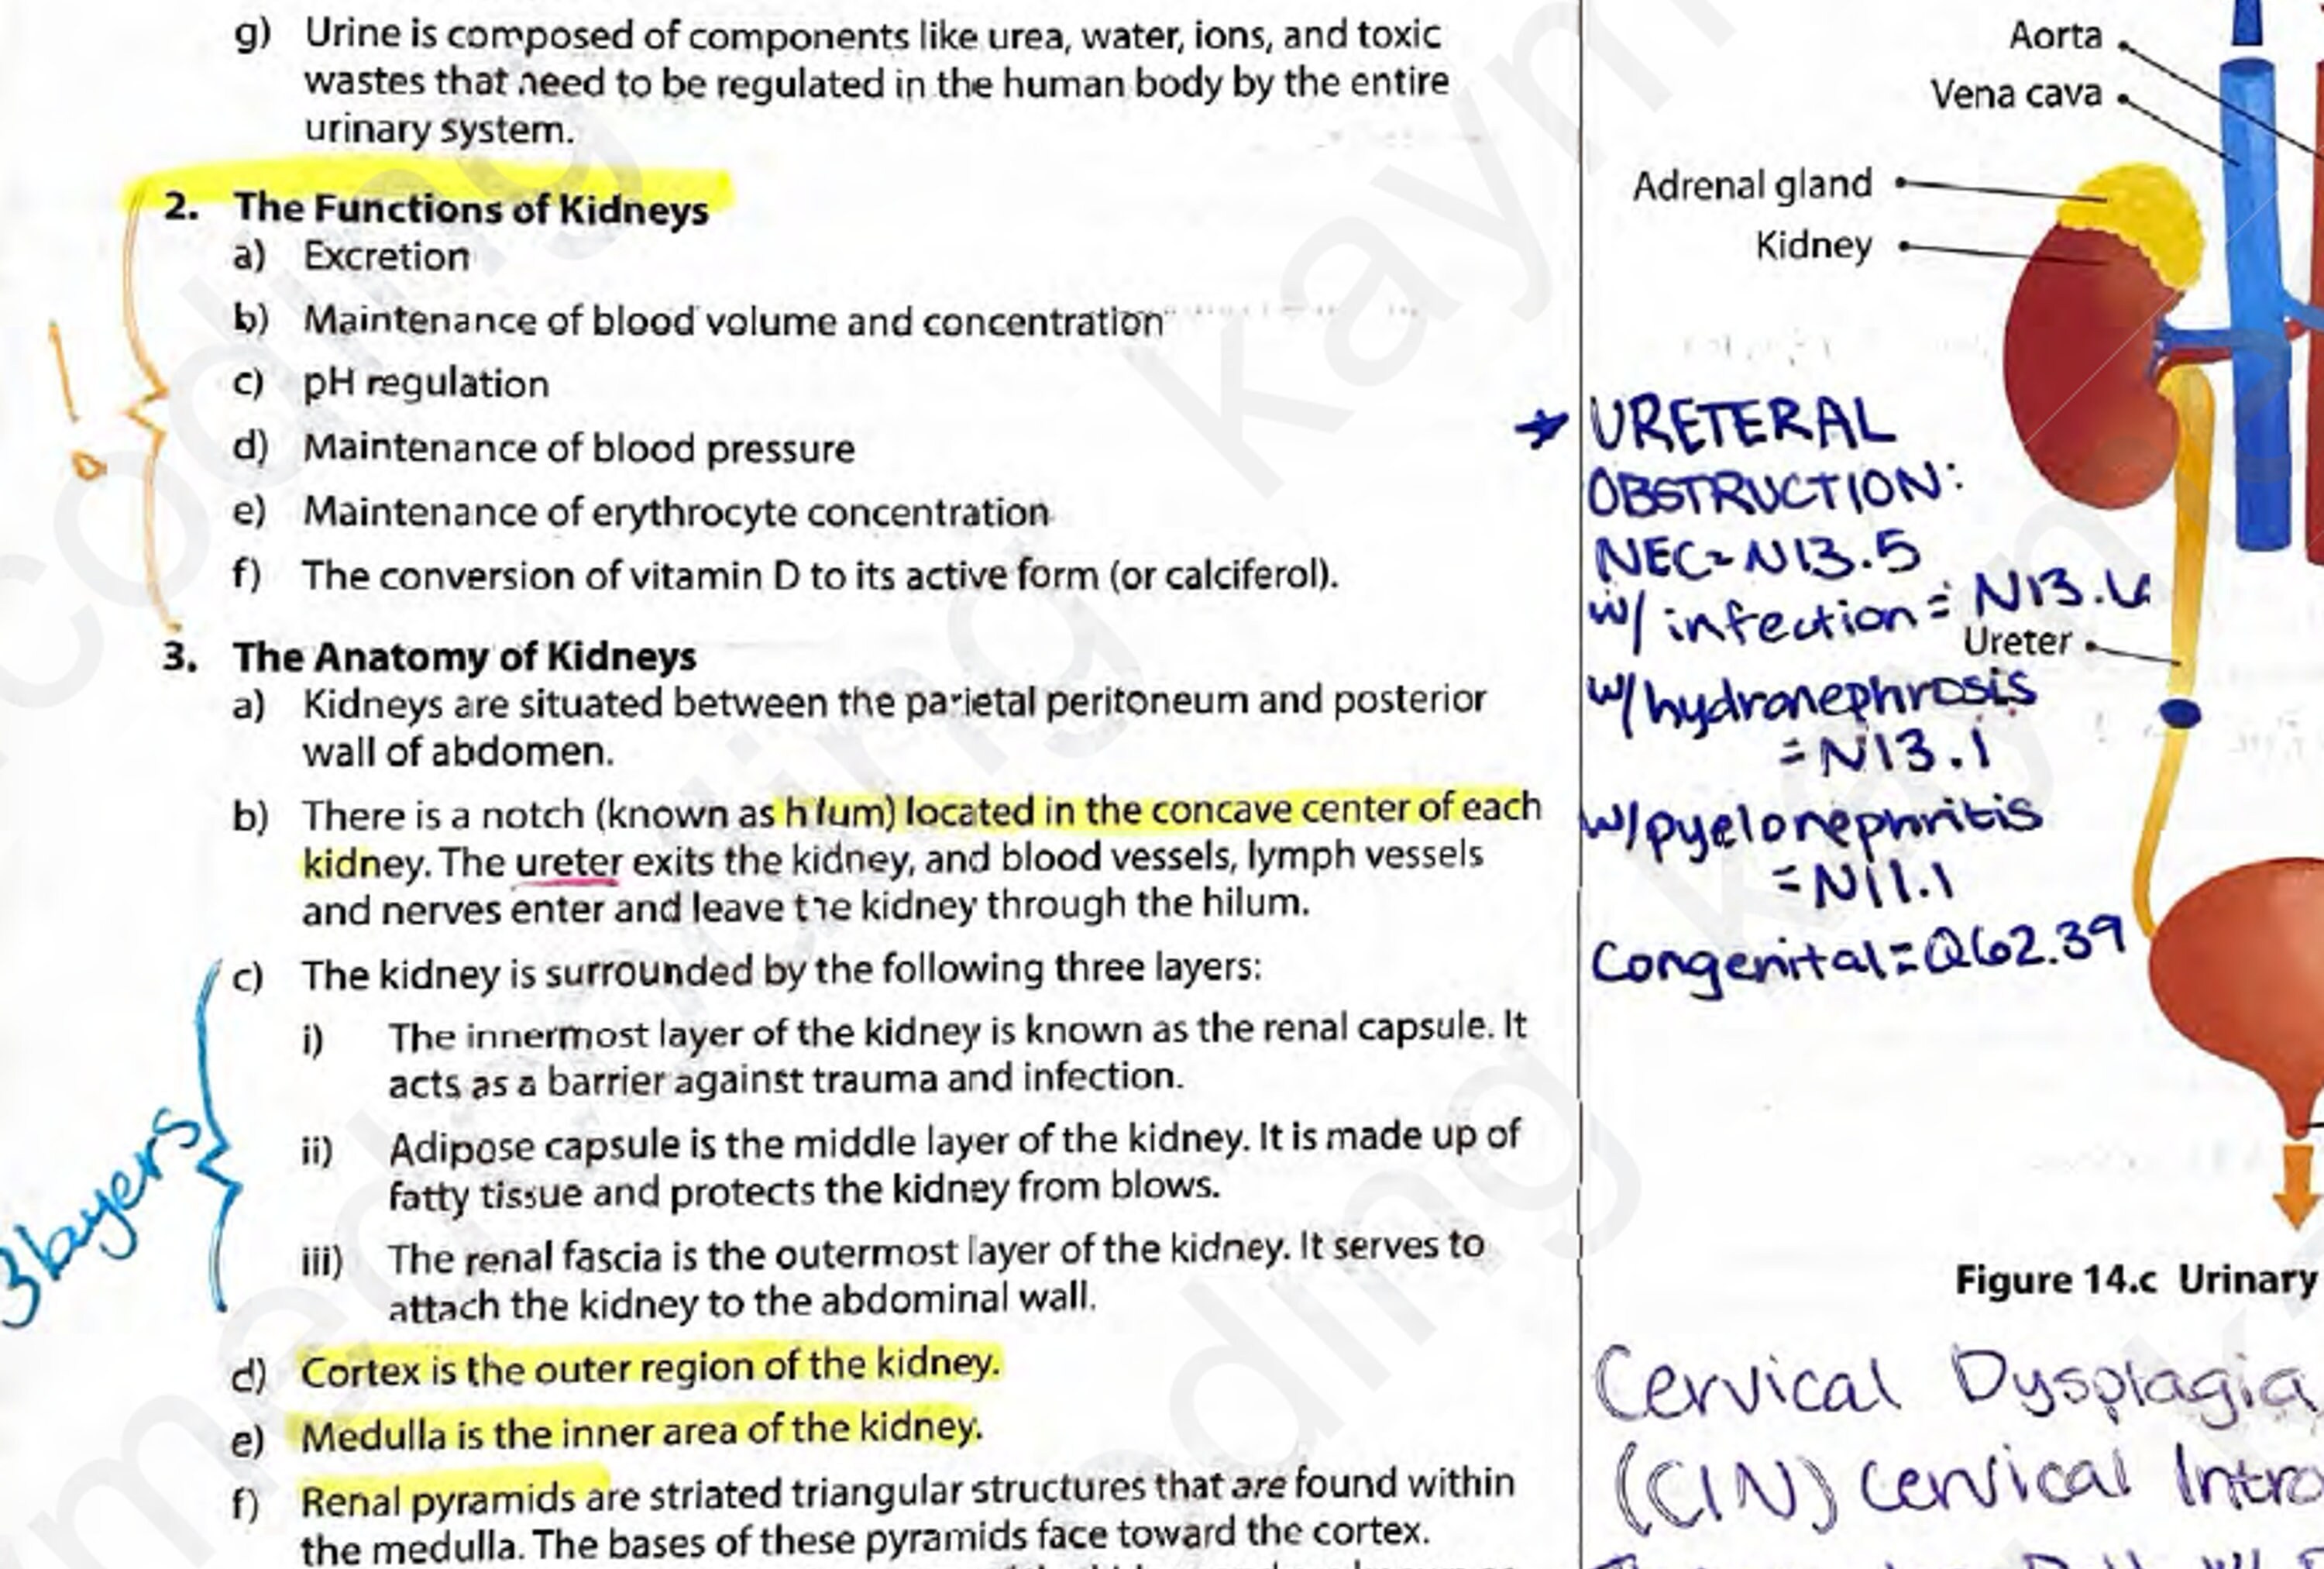 g) Urine is composed of components like urea, water, ions, and toxic
wastes that need to be regulated in the human body by the entire
urinary system.
2. The Functions of Kidneys
a) Excretion
b) Maintenance of blood volume and concentration
c) pH regulation
d) Maintenance of blood pressure
e) Maintenance of erythrocyte concentration
f) The conversion of vitamin D to its active form (or calciferol).
3. The Anatomy of Kidneys
a) Kidneys are situated between the parietal peritoneum and posterior
wall of abdomen.
b) There is a notch (known as hilum) located in the concave center of each
kidney. The ureter exits the kidney, and blood vessels, lymph vessels
and nerves enter and leave the kidney through the hilum.
c) The kidney is surrounded by the following three layers:
i) The innermost layer of the kidney is known as the renal capsule. It
acts as a barrier against trauma and infection.
ii) Adipose capsule is the middle layer of the kidney. It is made up of
fatty tissue and protects the kidney from blows.
iii) The renal fascia is the outermost layer of the kidney. It serves to
attach the kidney to the abdominal wall.
3 layers
d) Cortex is the outer region of the kidney.
e) Medulla is the inner area of the kidney.
f) Renal pyramids are striated triangular structures that are found within
the medulla. The bases of these pyramids face toward the cortex.
Aorta
Vena cava
Adrenal gland
Kidney
URETERAL
OBSTRUCTION:
NEC=N13.5
w/ infection = N13.6
Ureter
w/hydronephrosis
=N13.1
w/pyelonephritis
=N11.1
Congenital=Q62.39
Figure 14.c Urinary
Cervical Dysplagia
(CIN) Cervical Intra
kaymedcoding